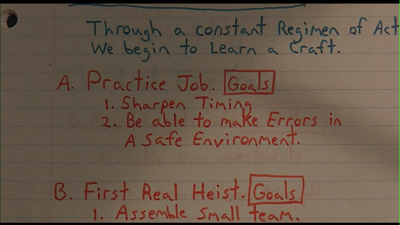 Through a constant Regimen of Act
We begin to Learn a Craft.
A. Practice Job. Goals
1. Sharpen Timing
2. Be able to make Errors in
A Safe Environment.
B. First Real Heist. Goals
1. Assemble small team.